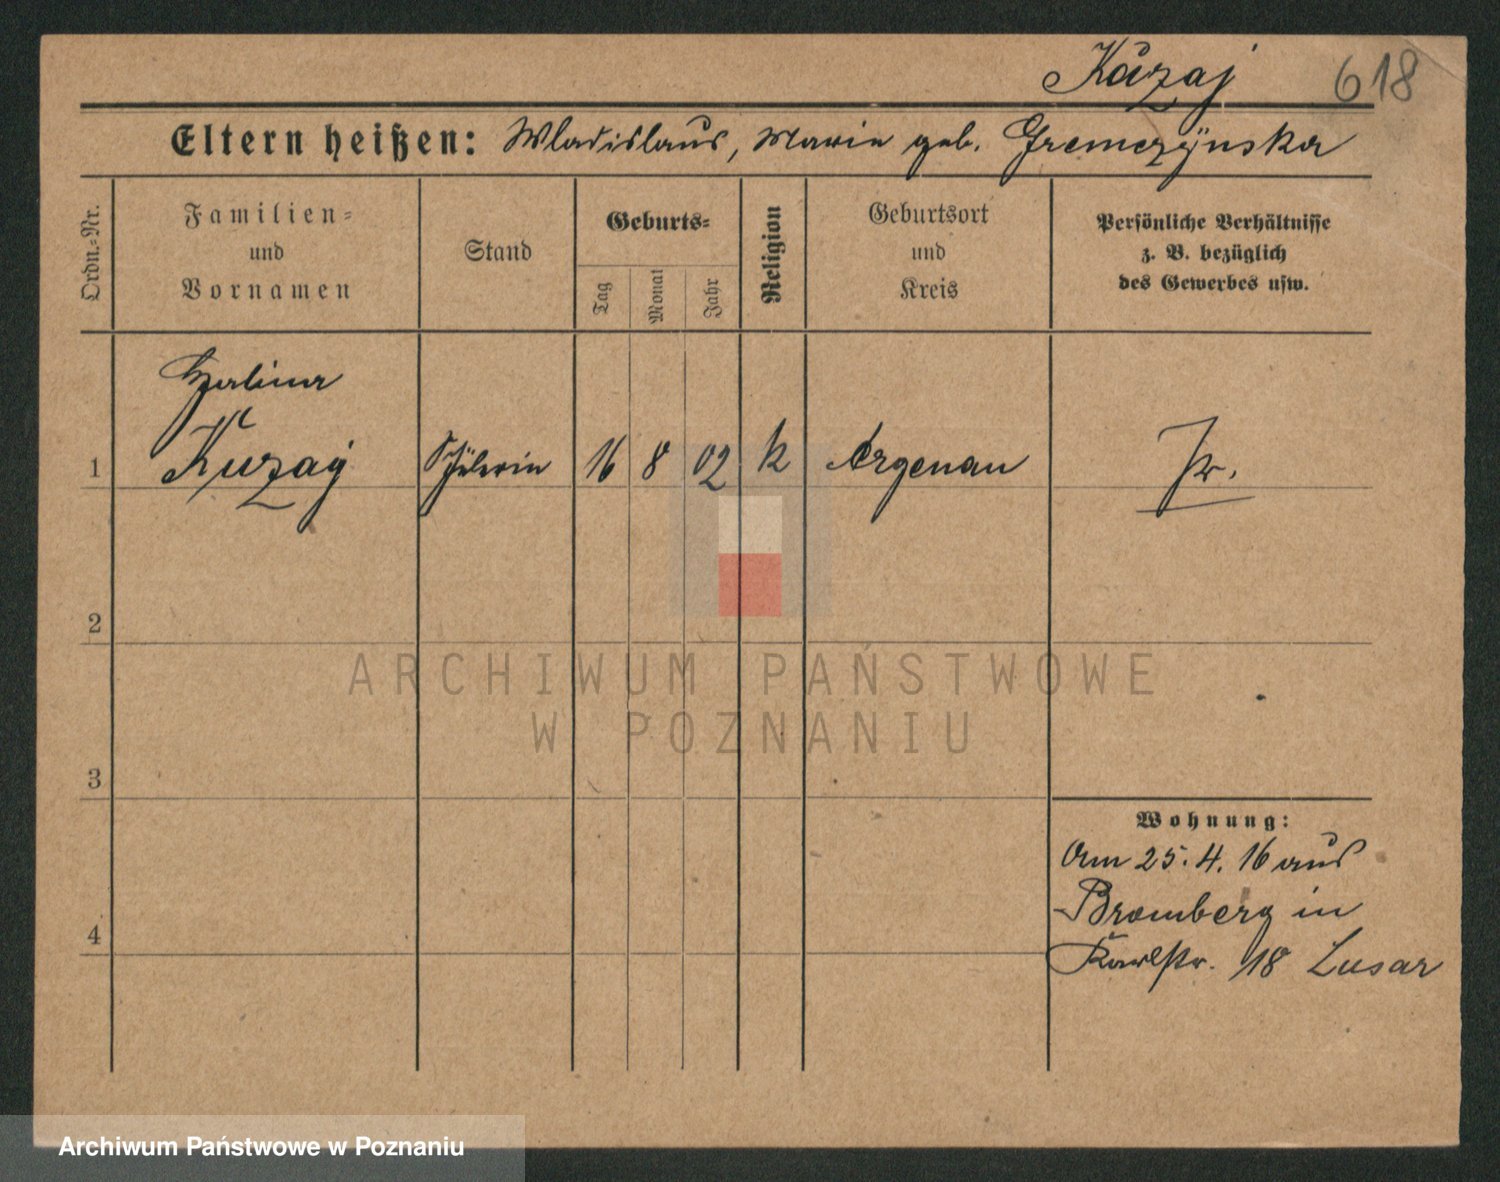 Kazaj 618
Eltern heißen: Wladislaus, Marie geb. Gremczynska
Ordn.=Nr.
Familien=
und
Vornamen
Stand
Geburts=
Tag
Monat
Jahr
Religion
Geburtsort
und
Kreis
Persönliche Verhältnisse
z. B. bezüglich
des Gewerbes usw.
Halina
1 Kuzaj Schülerin 16 8 02 k Argenau Pr.
2
ARCHIWUM PAŃSTWOWE
W POZNANIU
3
Wohnung:
Am 25.4.16 aus
Bromberg in
4
Karlstr. 18 Lusar
Archiwum Państwowe w Poznaniu